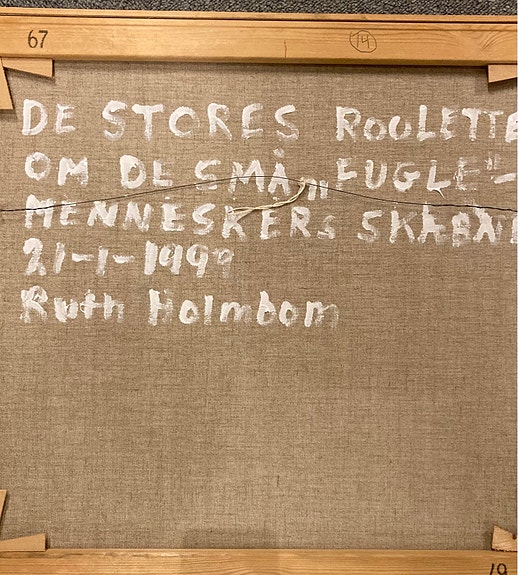 67
14
DE STORES ROULETTE
OM DE SMÅ "FUGLE"-
MENNESKERS SKÆBNE
21-1-1999
Ruth Holmbom
19